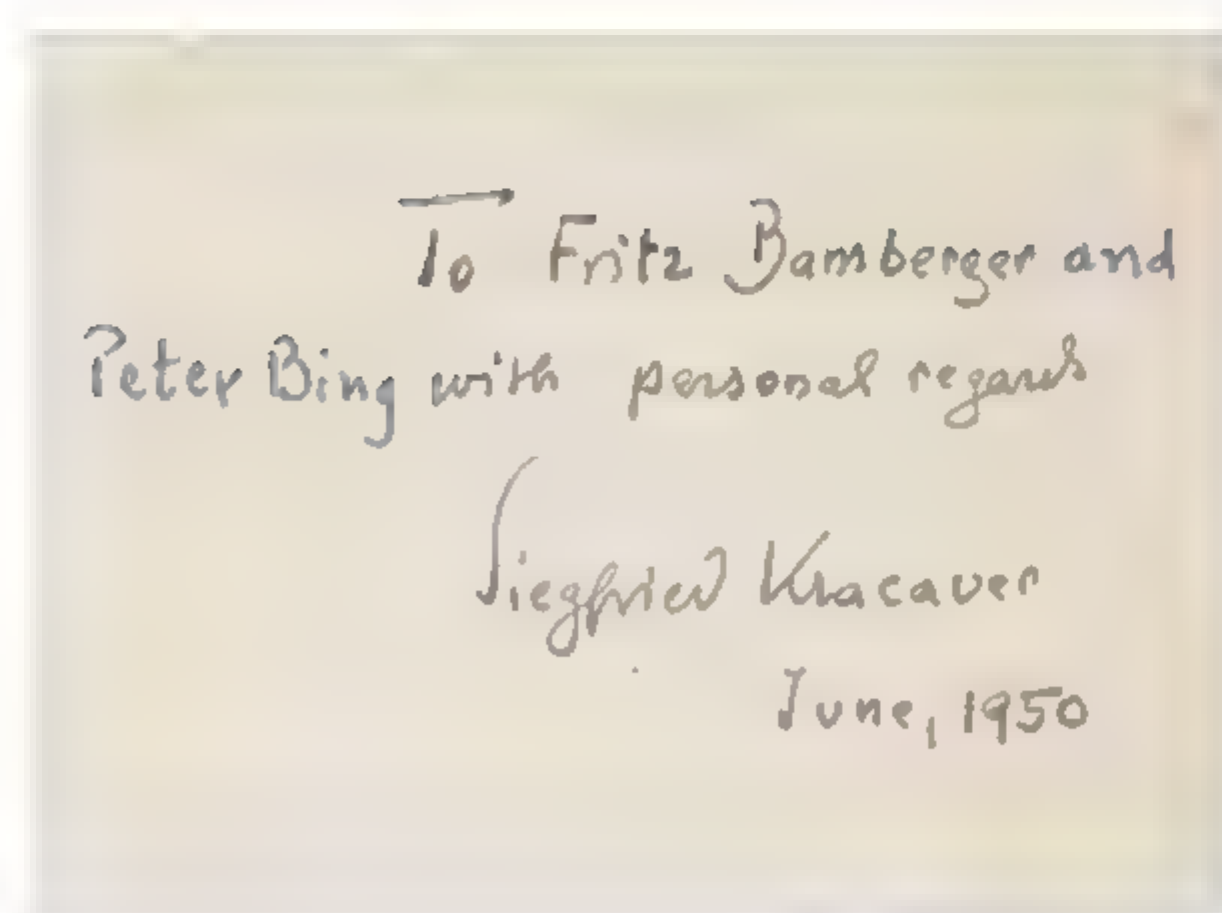 To Fritz Bamberger and
Peter Bing with personal regards
Siegfried Kracauer
June, 1950